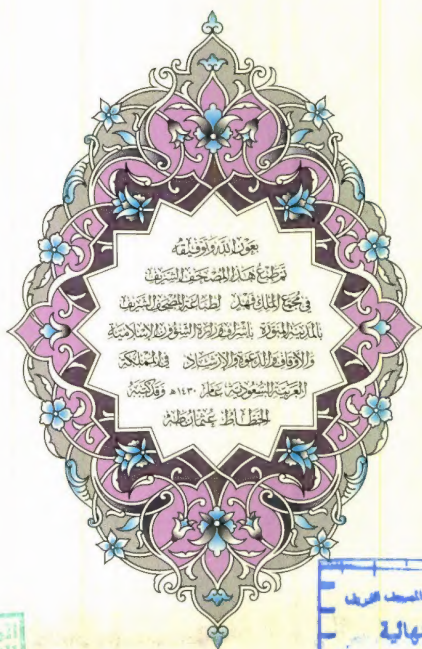 بعون الله وتوفيقه
تم طبع هذا المصحف الشريف
في مجمع الملك فهد لطباعة المصحف الشريف
بالمدينة المنورة بإشراف وزارة الشؤون الإسلامية
والأوقاف والدعوة والإرشاد في المملكة
العربية السعودية عام ١٤٣٠ه وقد كتبه
الخطاط عثمان طه
المصحف الشريف